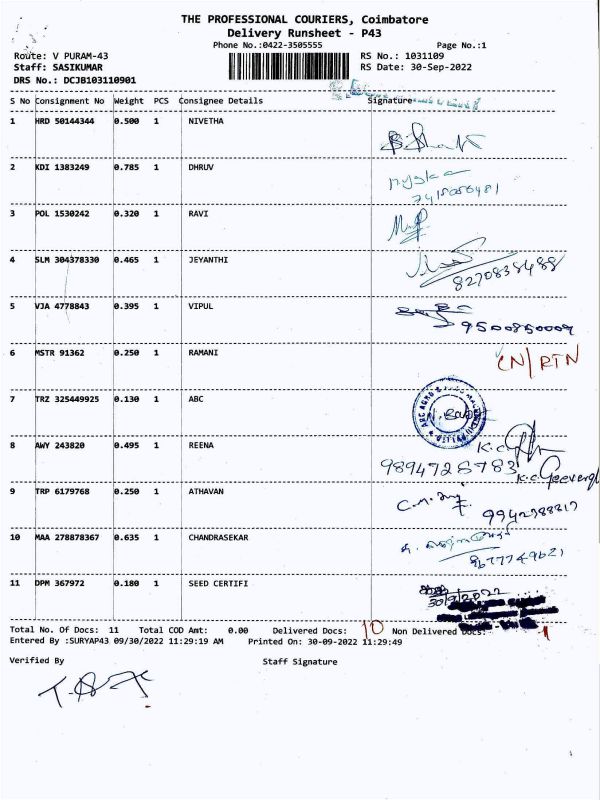 THE PROFESSIONAL COURIERS, Coimbatore
Delivery Runsheet - P43
Phone No.:0422-3505555 Page No.:1
Route: V PURAM-43 RS No.: 1031109
Staff: SASIKUMAR RS Date: 30-Sep-2022
DRS No.: DCJB103110901
S No Consignment No Weight PCS Consignee Details Signature
1 HRD 50144344 0.500 1 NIVETHA
2 KDI 1383249 0.785 1 DHRUV
3 POL 1530242 0.320 1 RAVI
4 SLM 304378330 0.465 1 JEYANTHI
8270838488
5 VJA 4778843 0.395 1 VIPUL
9500850009
6 MSTR 91362 0.250 1 RAMANI CN/RTN
7 TRZ 325449925 0.130 1 ABC
8 AWY 243820 0.495 1 REENA K.C.
9894728783 K.C. Geevergh
9 TRP 6179768 0.250 1 ATHAVAN
9942388217
10 MAA 278878367 0.635 1 CHANDRASEKAR
9677749621
11 DPM 367972 0.180 1 SEED CERTIFI
30/9/2022
Total No. Of Docs: 11 Total COD Amt: 0.00 Delivered Docs: 10 Non Delivered Docs: 1
Entered By :SURYAP43 09/30/2022 11:29:19 AM Printed On: 30-09-2022 11:29:49
Verified By Staff Signature